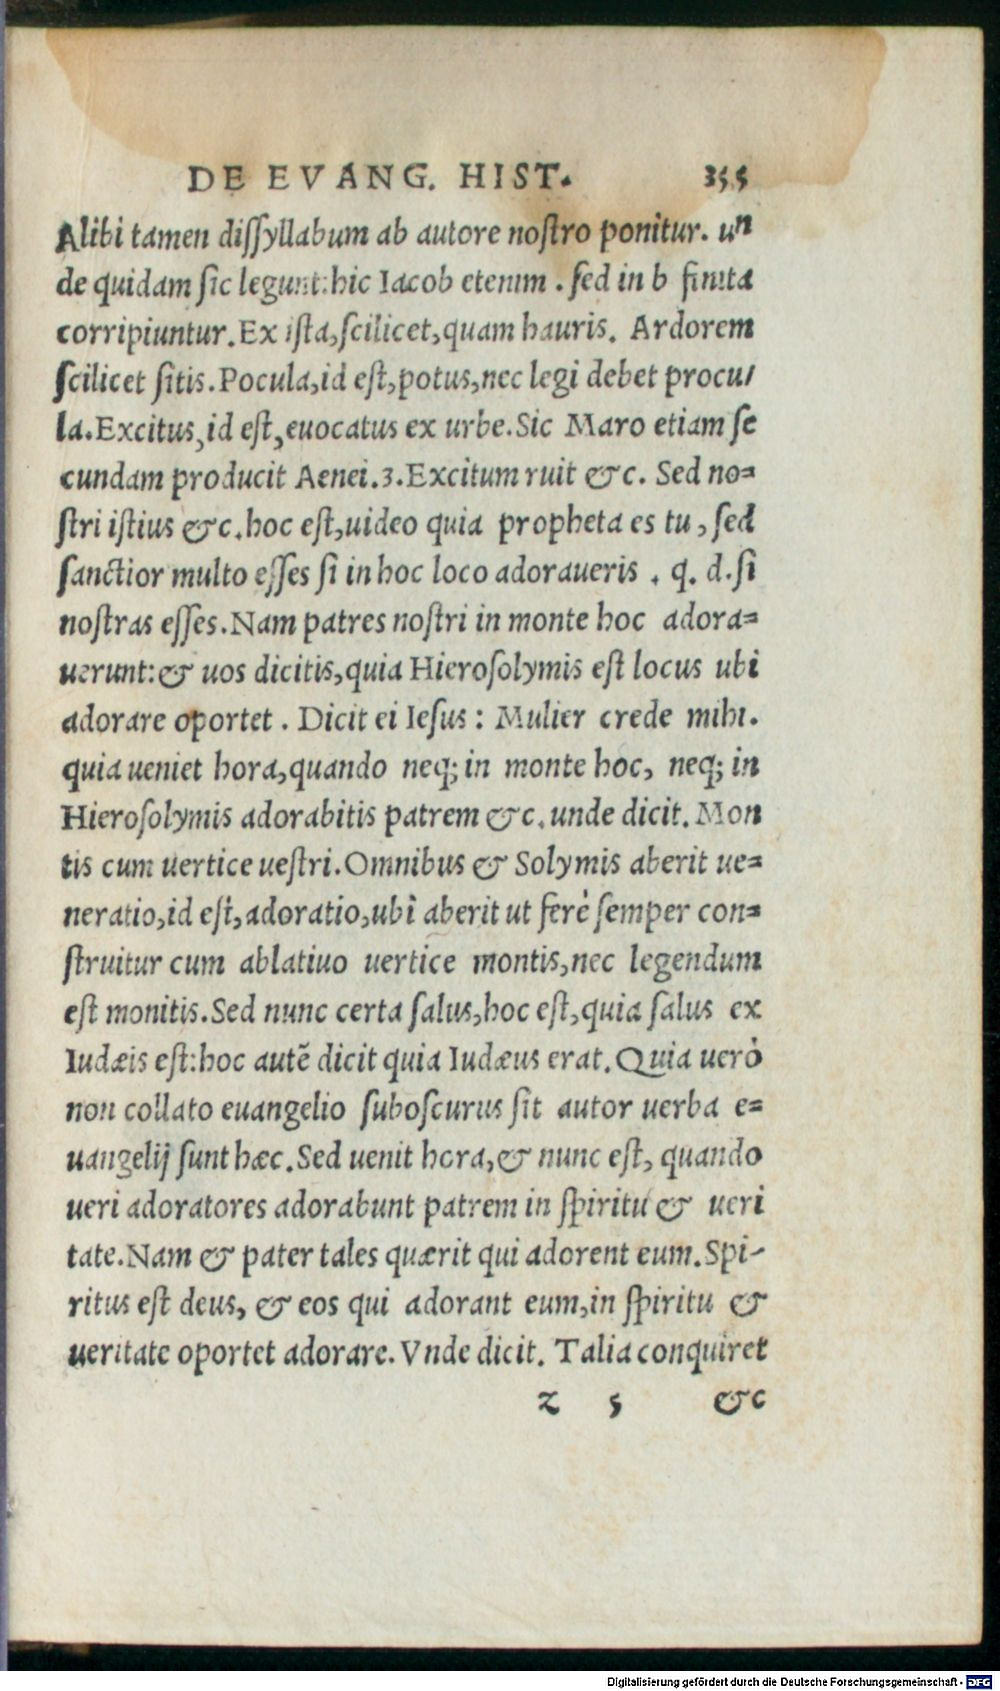 DE EVANG. HIST. 355
Alibi tamen dissyllabum ab autore nostro ponitur. un
de quidam sic legunt: hic Iacob etenim . sed in b finita
corripiuntur. Ex ista, scilicet, quam hauris. Ardorem
scilicet sitis. Pocula, id est, potus, nec legi debet procu/
la. Excitus, id est, euocatus ex urbe. Sic Maro etiam se
cundam producit Aenei. 3. Excitum ruit &c. Sed no=
stri istius &c. hoc est, uideo quia propheta es tu, sed
sanctior multo esses si in hoc loco adoraueris . q. d. si
nostras esses. Nam patres nostri in monte hoc adora=
uerunt: & uos dicitis, quia Hierosolymis est locus ubi
adorare oportet . Dicit ei Iesus : Mulier crede mihi.
quia ueniet hora, quando neq; in monte hoc, neq; in
Hierosolymis adorabitis patrem &c. unde dicit. Mon
tis cum uertice uestri. Omnibus & Solymis aberit ue=
neratio, id est, adoratio, ubi aberit ut ferè semper con=
struitur cum ablatiuo uertice montis, nec legendum
est monitis. Sed nunc certa salus, hoc est, quia salus ex
Iudæis est: hoc autē dicit quia Iudæus erat. Quia uerò
non collato euangelio suboscurus sit autor uerba e=
uangelij sunt hæc. Sed uenit hora, & nunc est, quando
ueri adoratores adorabunt patrem in spiritu & ueri
tate. Nam & pater tales quærit qui adorent eum. Spi-
ritus est deus, & eos qui adorant eum, in spiritu &
ueritate oportet adorare. Vnde dicit. Talia conquiret
z 5 &c
Digitalisierung gefördert durch die Deutsche Forschungsgemeinschaft - DFG